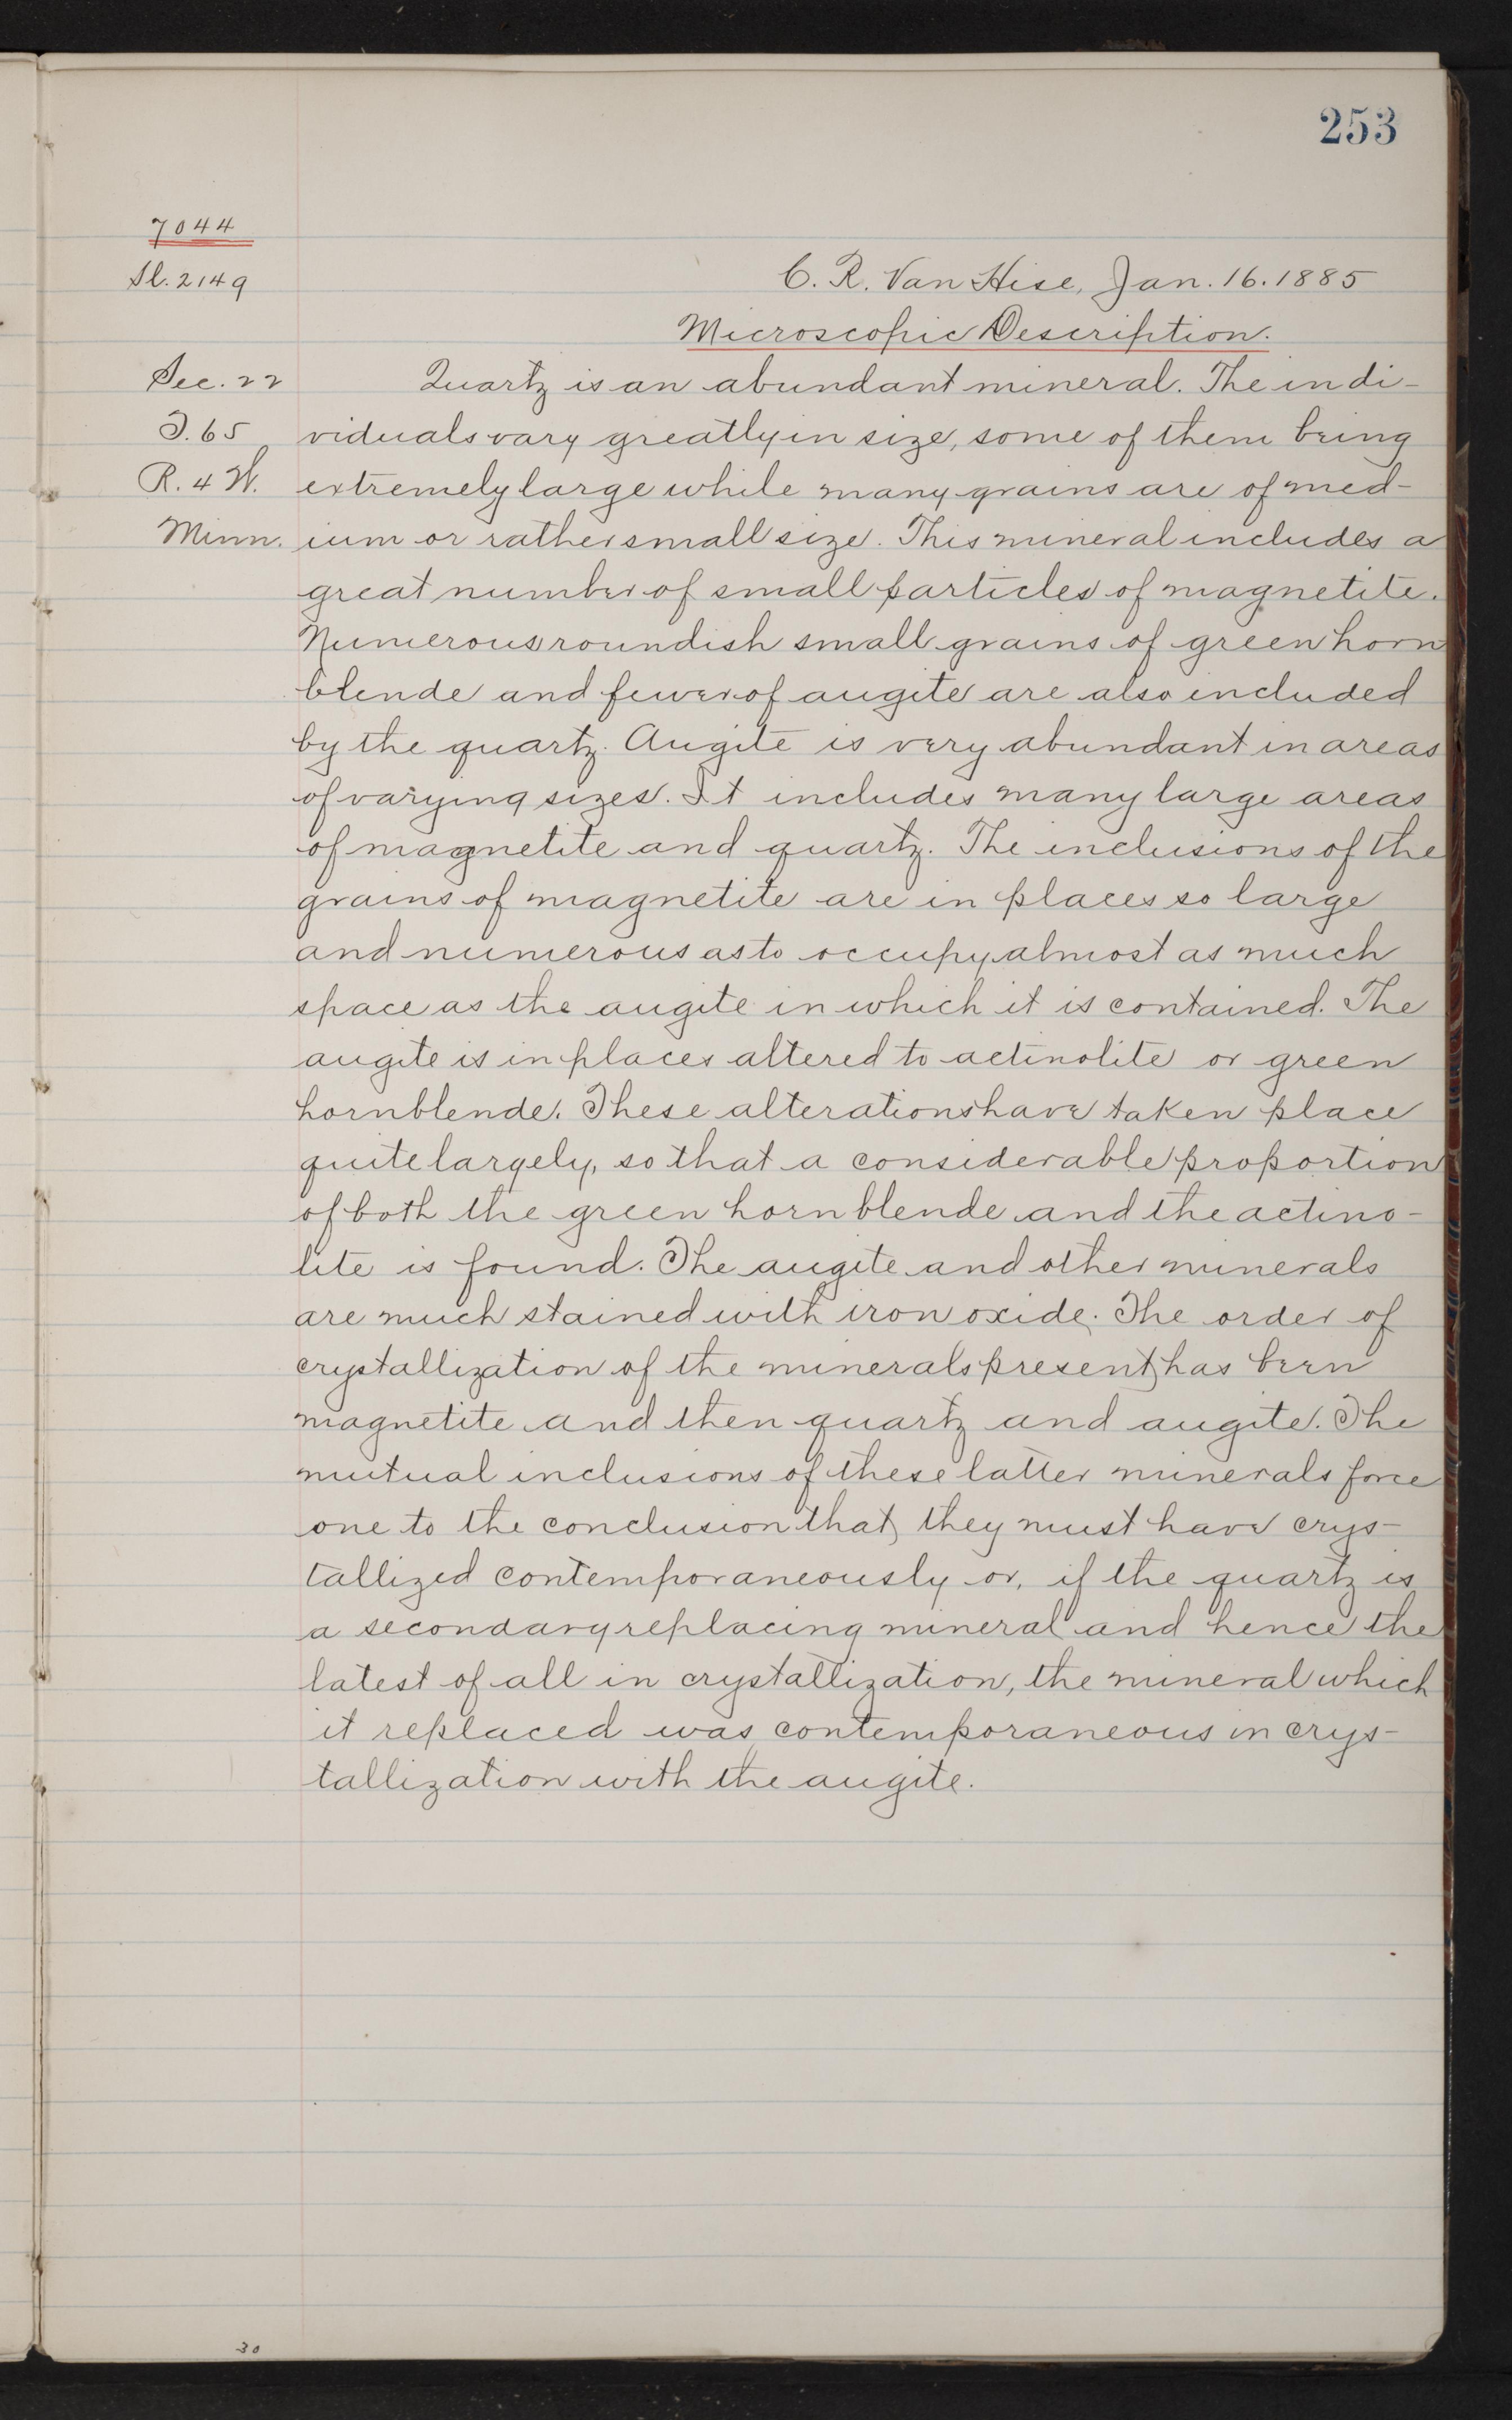 253
7044
Sl. 2149
C. R. Van Hise, Jan. 16. 1885
Microscopic Description.
Sec. 22
T. 65
R. 4 W.
Minn.
Quartz is an abundant mineral. The indi-
viduals vary greatly in size, some of them being
extremely large while many grains are of med-
ium or rather small size. This mineral includes a
great number of small particles of magnetite.
Numerous roundish small grains of green horn
blende and fewer of augite are also included
by the quartz. Augite is very abundant in areas
of varying sizes. It includes many large areas
of magnetite and quartz. The inclusions of the
grains of magnetite are in places so large
and numerous as to occupy almost as much
space as the augite in which it is contained. The
augite is in places altered to actinolite or green
hornblende. These alterations have taken place
quite largely, so that a considerable proportion
of both the green hornblende and the actino-
lite is found. The augite and other minerals
are much stained with iron oxide. The order of
crystallization of the minerals present, has been
magnetite and then quartz and augite. The
mutual inclusions of these latter minerals force
one to the conclusion that, they must have crys-
tallized contemporaneously or, if the quartz is
a secondary replacing mineral and hence the
latest of all in crystallization, the mineral which
it replaced was contemporaneous in crys-
tallization with the augite.
30